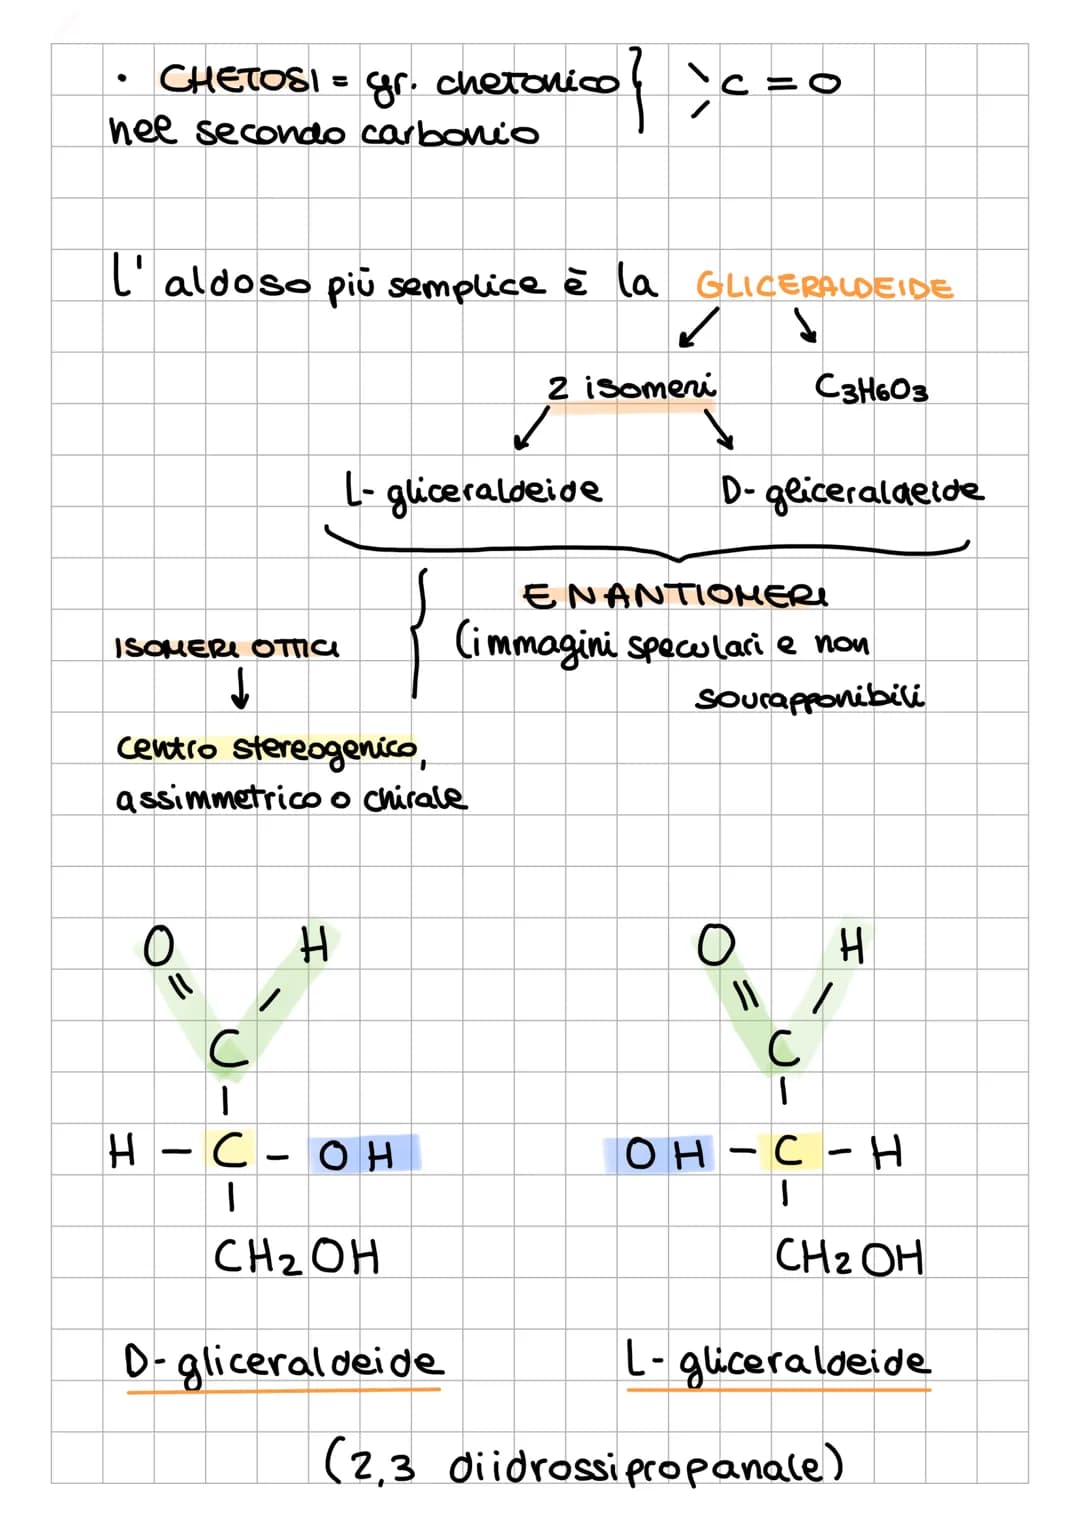 • CHETOSI = gr. chetonico } C = O
nel secondo carbonio
L' aldoso più semplice è la GLICERALDEIDE
2 isomeri C3H6O3
L- gliceraldeide D- gliceraldeide
ENANTIOMERI
ISOMERI OTTICI { (immagini speculari e non
sovrapponibili
centro stereogenico,
assimmetrico o chirale
O H O H
= / = /
C C
| |
H - C - OH OH - C - H
| |
CH2OH CH2OH
D- gliceraldeide L- gliceraldeide
(2,3 diidrossipropanale)